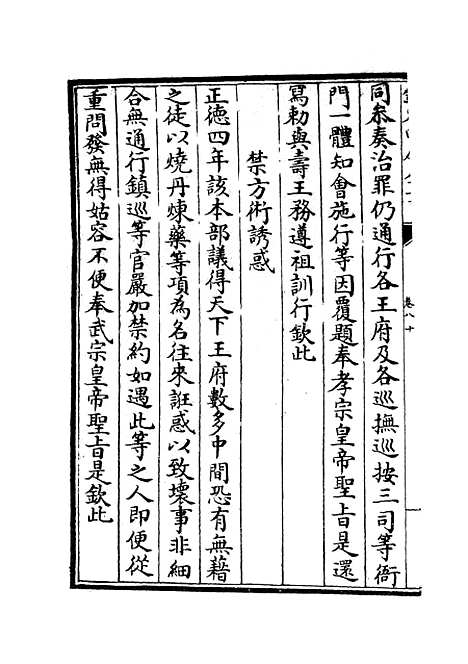 同叅奏治罪仍通行各王府及各巡撫巡按三司等衙
門一體知會施行等因覆題奉孝宗皇帝聖旨是還
寫勅與壽王務遵祖訓行欽此
禁方術誘惑
正德四年該本部議得天下王府數多中間恐有無藉
之徒以燒丹煉藥等項為名往來誑惑以致壞事非細
合無通行鎮巡等官嚴加禁約如遇此等之人即便從
重問發無得姑容不便奉武宗皇帝聖旨是欽此
卷八十